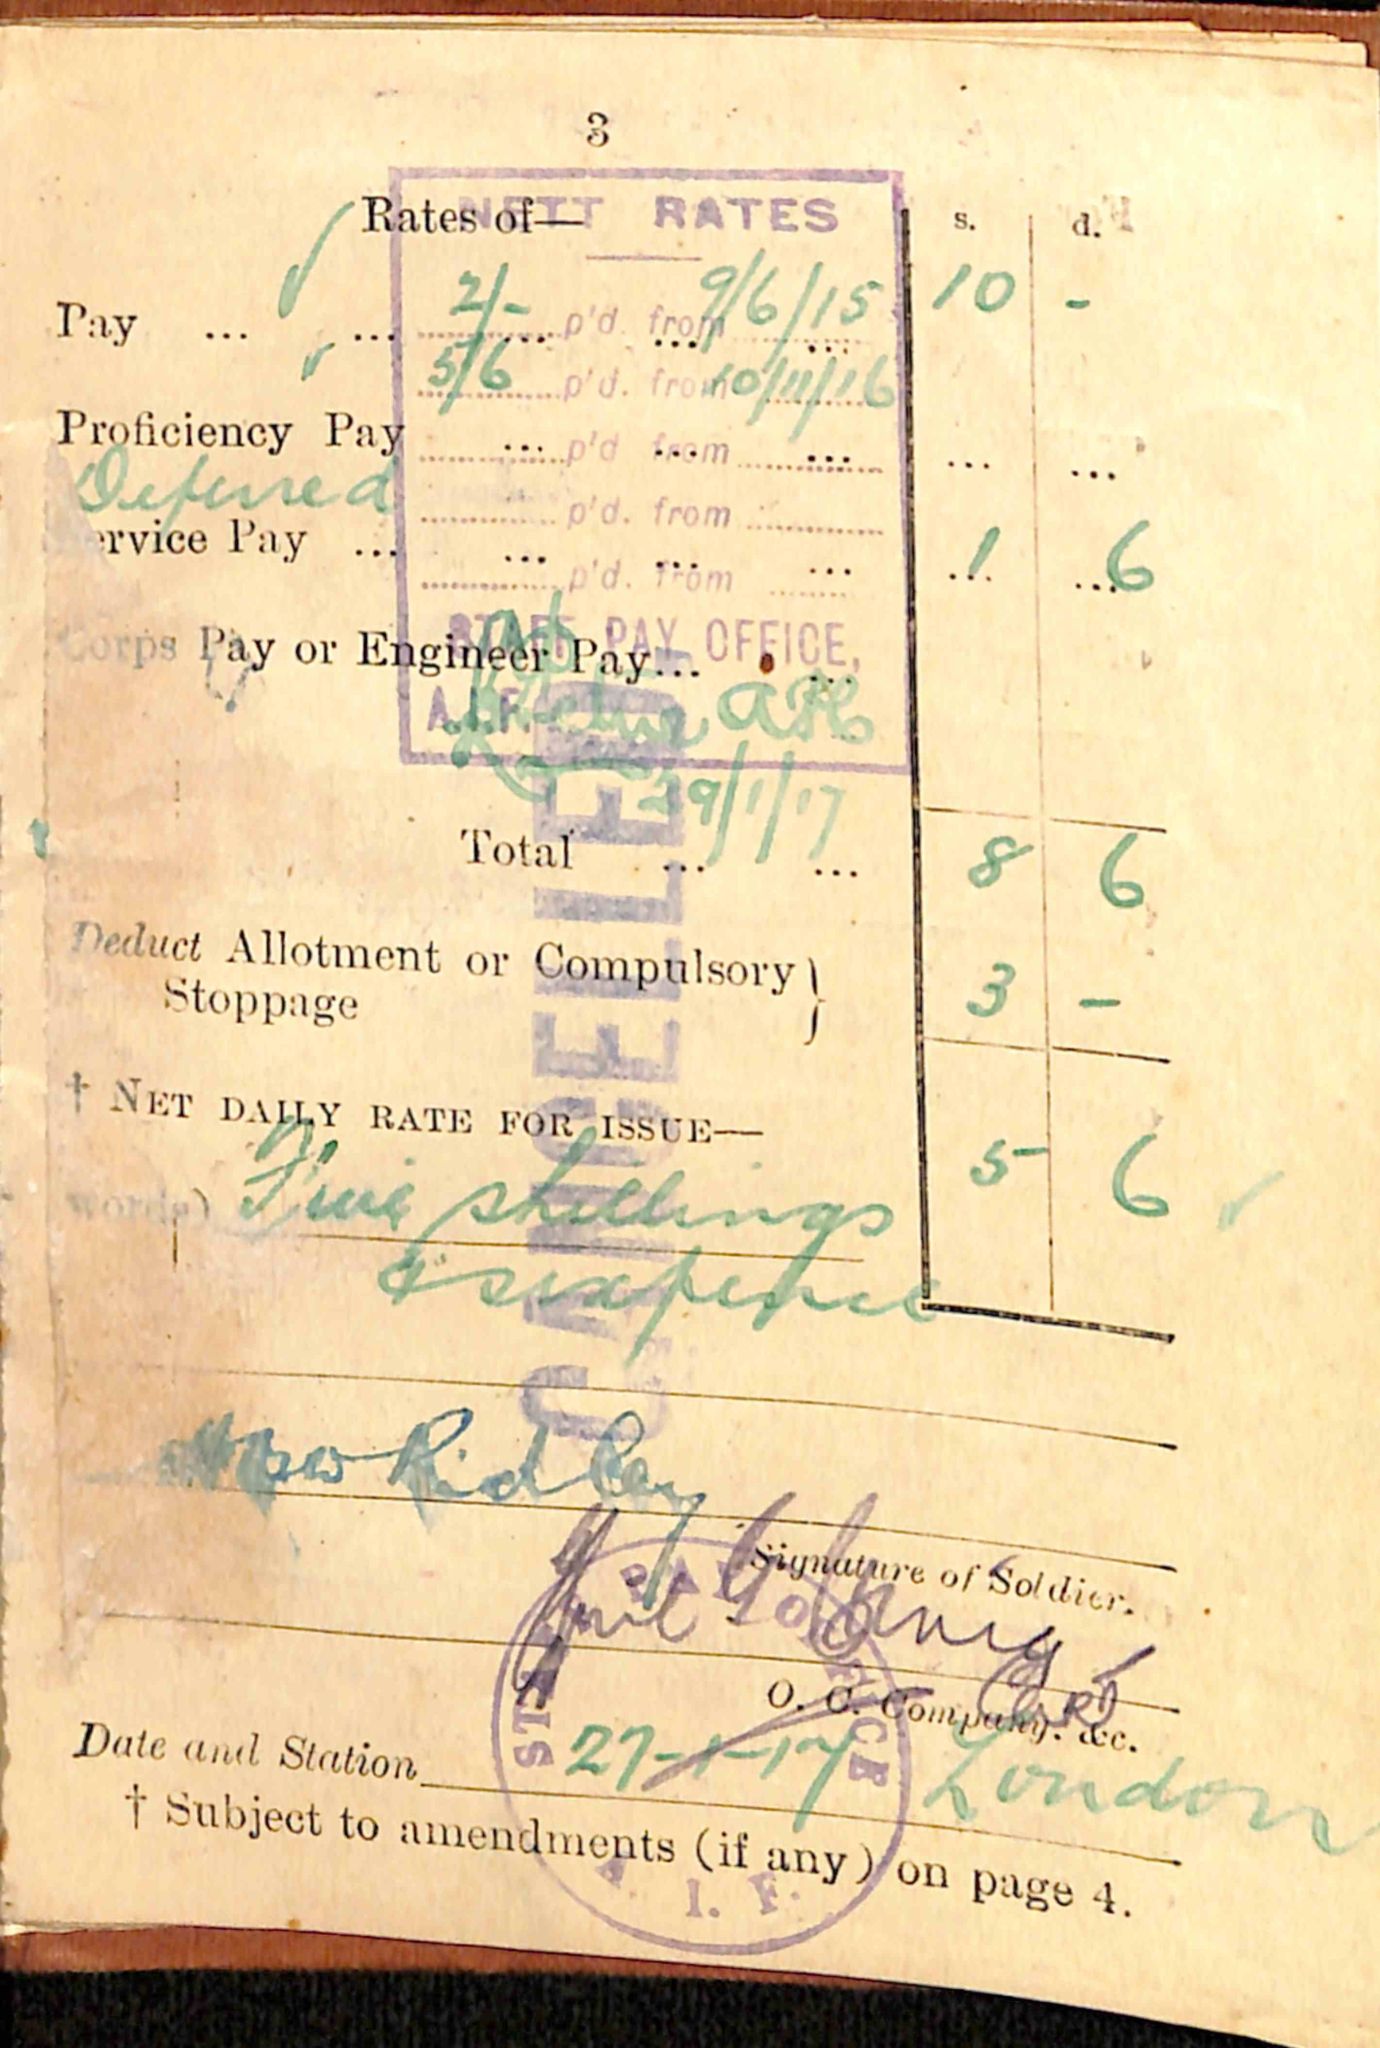 3
Rates of— NETT RATES s. d.
Pay ... ... 2/- p'd. from 9/6/15 10 -
5/6 p'd. from 10/11/16
Proficiency Pay ... p'd from ... ... ...
Deferred p'd. from
ervice Pay ... ... p'd. from ... 1 6
Corps Pay or Engineer Pay... ...
STAFF PAY OFFICE,
A.I.F.
29/1/17
Total ... ... 8 6
Deduct Allotment or Compulsory } 3 -
Stoppage
† NET DAILY RATE FOR ISSUE— 5 6
words) Five shillings
& sixpence
CANCELLED
Ridley
Signature of Soldier.
O. C. Company. &c.
STAFF PAY OFFICE
A. I. F.
Date and Station 27-1-17 London
† Subject to amendments (if any) on page 4.